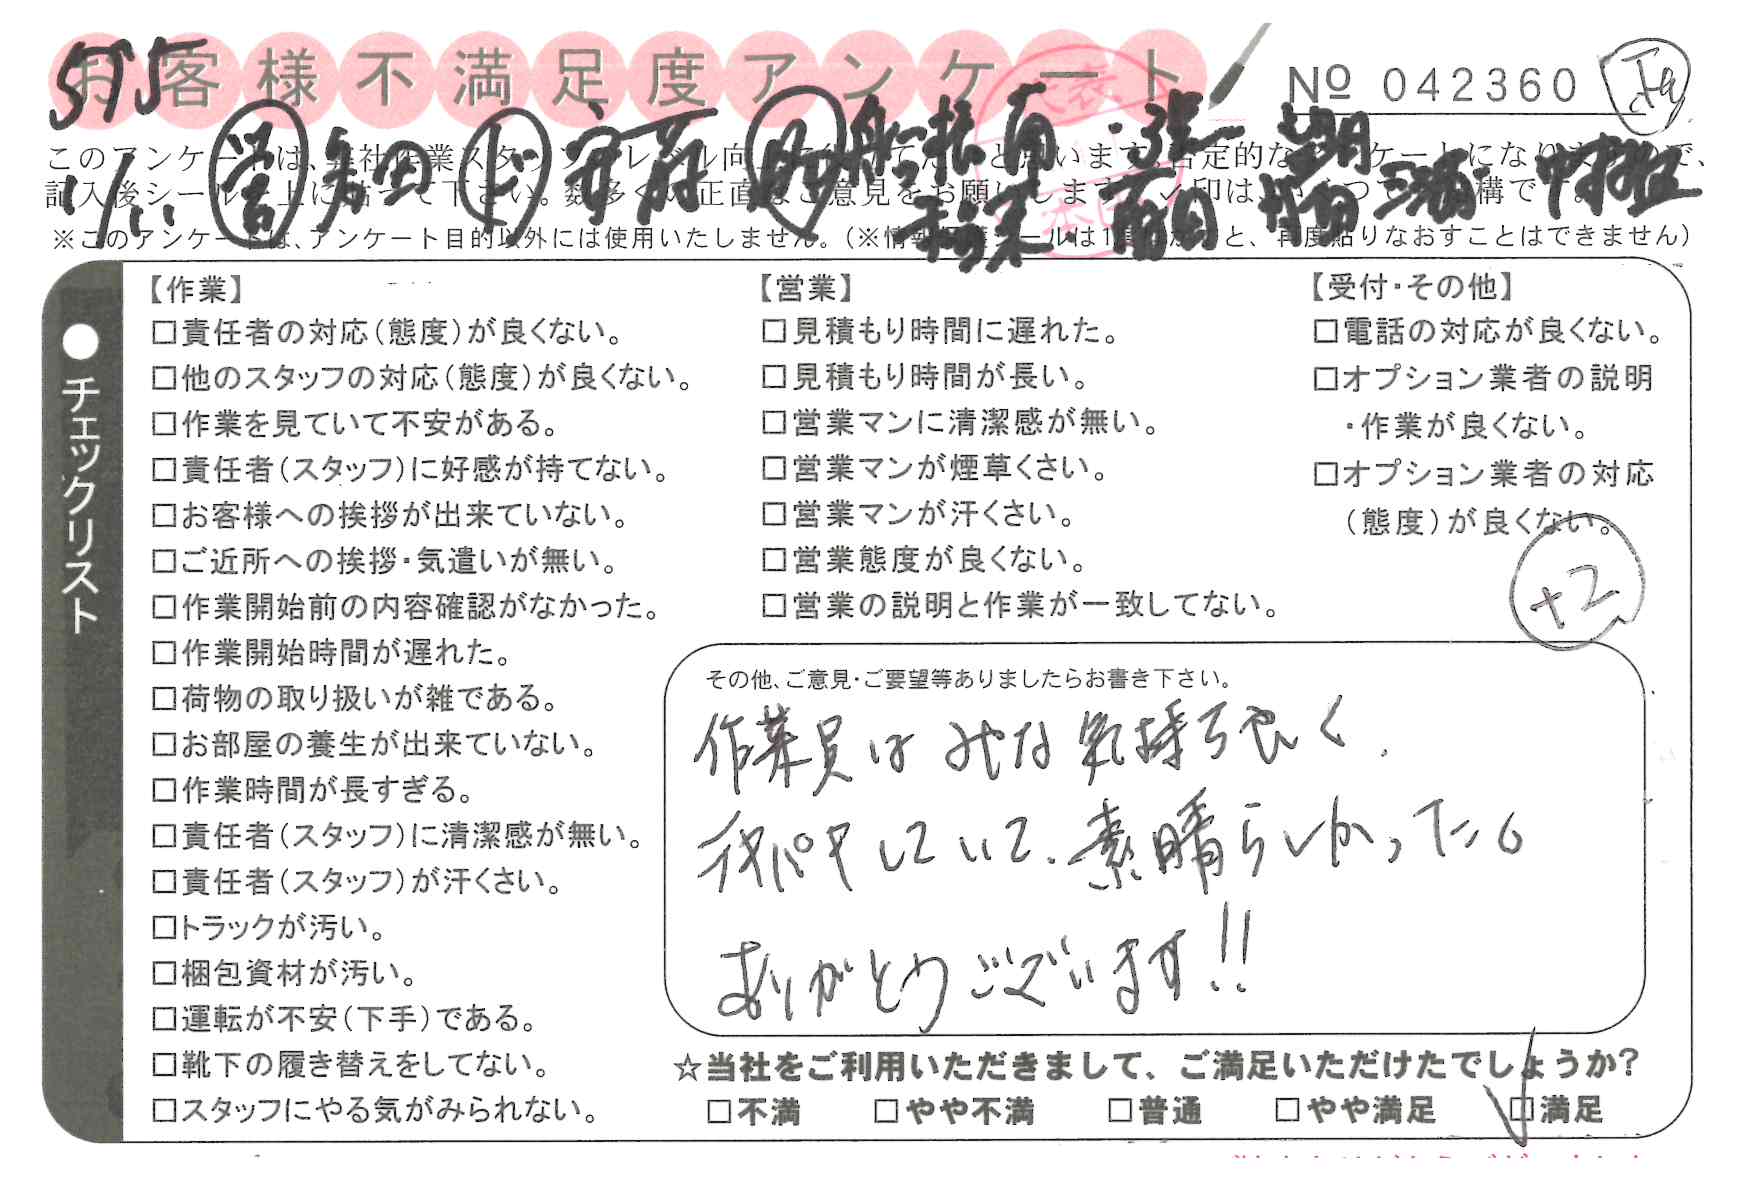 お客様不満足度アンケート
№ 042360
575
11/11 営 多田 ト 安藤 助
※このアンケートは、アンケート目的以外には使用いたしません。
再度貼りなおすことはできません）
●チェックリスト
【作業】
□責任者の対応（態度）が良くない。
□他のスタッフの対応（態度）が良くない。
□作業を見ていて不安がある。
□責任者（スタッフ）に好感が持てない。
□お客様への挨拶が出来ていない。
□ご近所への挨拶・気遣いが無い。
□作業開始前の内容確認がなかった。
□作業開始時間が遅れた。
□荷物の取り扱いが雑である。
□お部屋の養生が出来ていない。
□作業時間が長すぎる。
□責任者（スタッフ）に清潔感が無い。
□責任者（スタッフ）が汗くさい。
□トラックが汚い。
□梱包資材が汚い。
□運転が不安（下手）である。
□靴下の履き替えをしてない。
□スタッフにやる気がみられない。
【営業】
□見積もり時間に遅れた。
□見積もり時間が長い。
□営業マンに清潔感が無い。
□営業マンが煙草くさい。
□営業マンが汗くさい。
□営業態度が良くない。
□営業の説明と作業が一致してない。
【受付・その他】
□電話の対応が良くない。
□オプション業者の説明
・作業が良くない。
□オプション業者の対応
（態度）が良くない。
+2
その他、ご意見・ご要望等ありましたらお書き下さい。
作業員はみな気持ち良く、
テキパキしていて、素晴らしかった。
ありがとうございます!!
☆当社をご利用いただきまして、ご満足いただけたでしょうか?
□不満 □やや不満 □普通 □やや満足 □満足